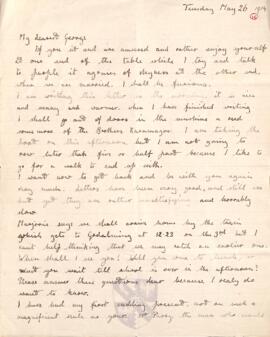 Tuesday May 26 1914
My dearest George
If you sit and are amused and rather enjoy yourself
at one end of the table while I try and talk
to people it agonies of shyness at the other end,
when we are married, I shall be furious.
I am writing this letter in the it is nice
and sunny and warmer. When I have finished writing
I shall go out of doors in the sunshine & read
some more of the Brothers Karamazov. I am taking the
boat on this afternoon but I am not going to
row later than five or half past because I like to
go for a walk to end up with.
I want now to get back and be with you again
very much. Letters have been very good, and still are
but yet they are rather unsatisfying and horribly
slow
Marjorie says we shall arrive home by the train
which gets to Godalming at 12-23 on the 3rd but I
cant help thinking that we may catch an earlier one.
When shall I see you? Will you come to lunch, or
must you wait till school is over in the afternoon?
Please answer these questions dear because I really do
want to know.
I have had my first wedding present, not on such a
magnificent scale as your Mr the man who would